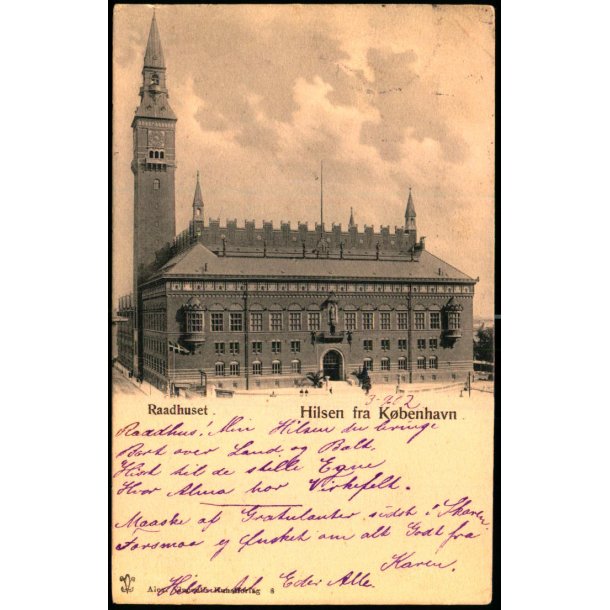 Raadhuset.
Hilsen fra København.
3-902
Raadhus! Min Hilsen du bringe
Bort over Land og Balt.
Hist til de stille Egne
Hvor Alma har Virkefelt.
Maaske af Gratulanter sidst i Skaren
Forsmaa ej Ønsket om alt Godt fra
Karen.
Hilsen Eder Alle.
Kunstforlag 8